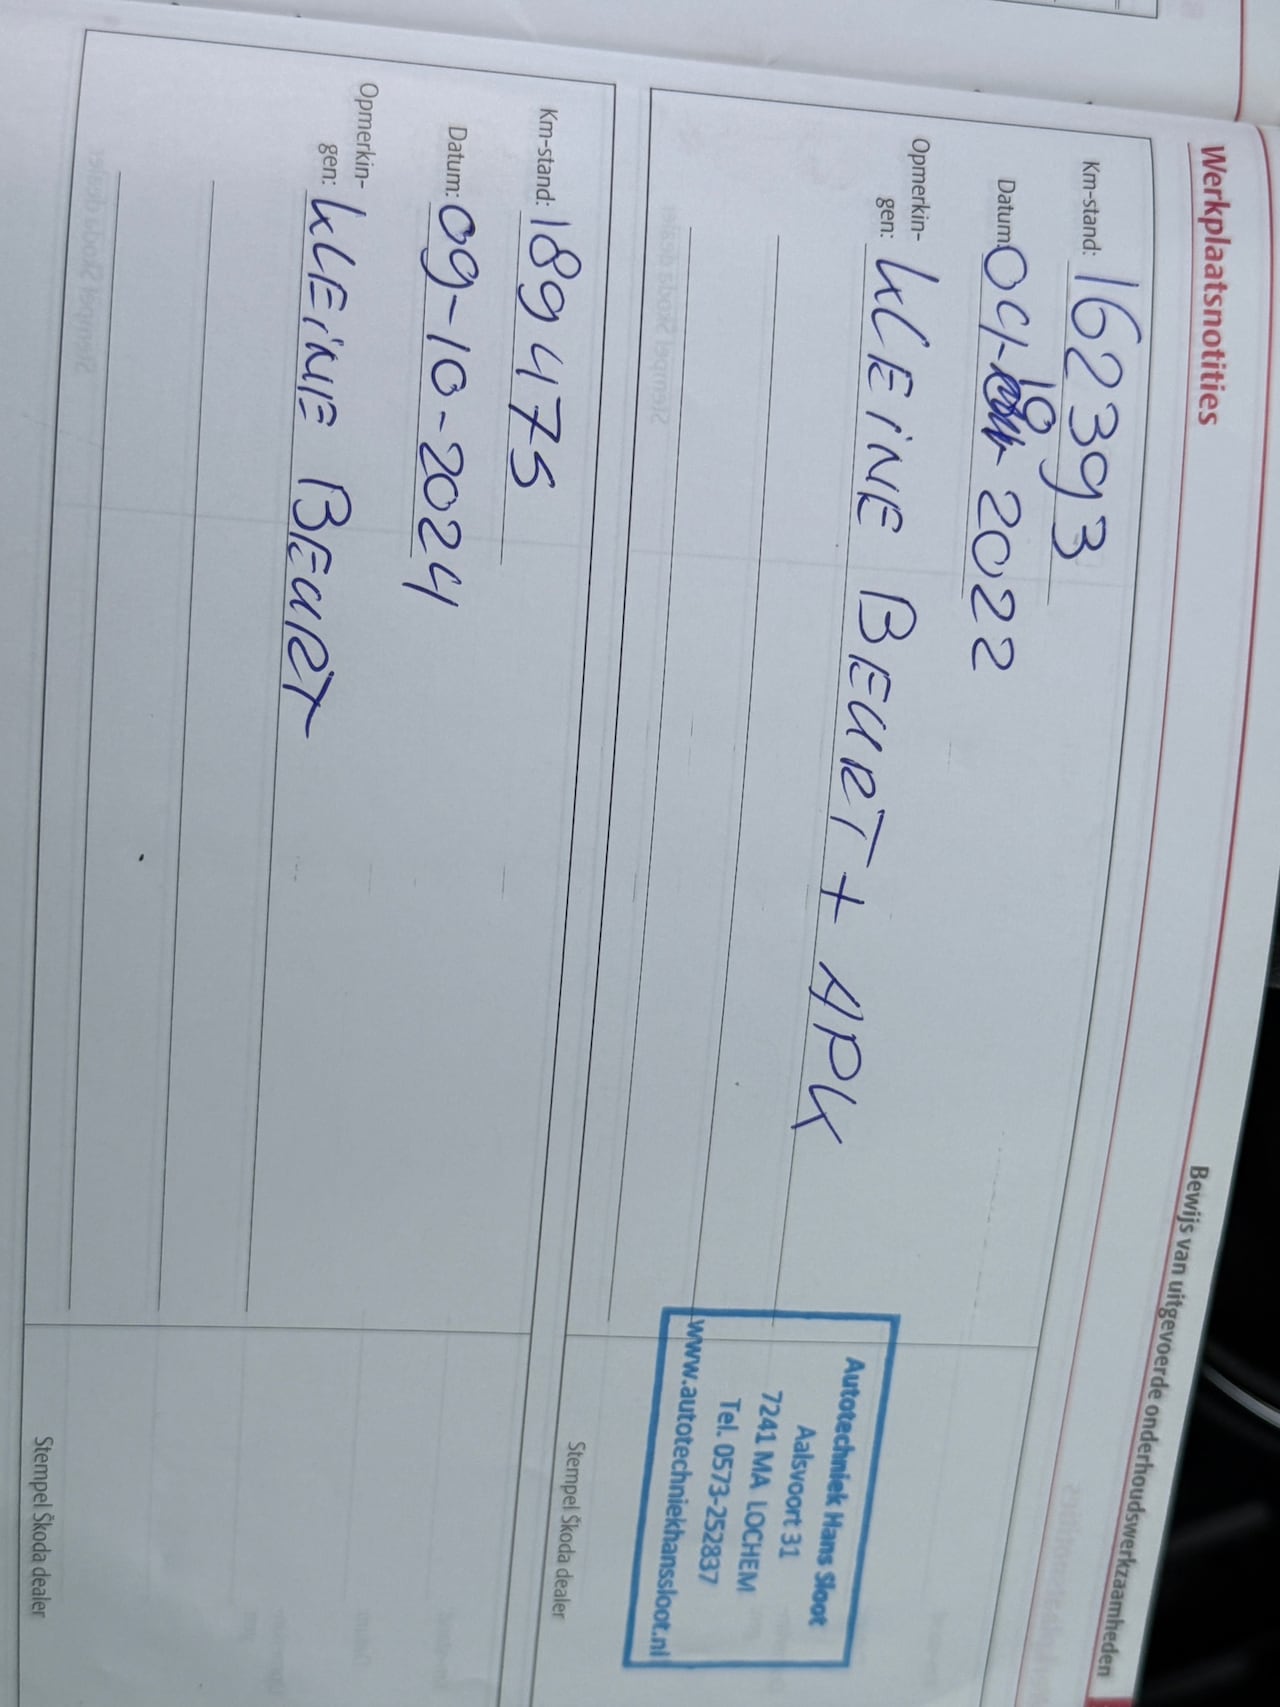 Werkplaatsnotities
Bewijs van uitgevoerde onderhoudswerkzaamheden
Km-stand: 162393
Datum: 04-10-2022
Opmerkin-
gen: KLEINE BEURT + APK
Autotechniek Hans Sloot
Aalsvoort 31
7241 MA LOCHEM
Tel. 0573-252837
www.autotechniekhanssloot.nl
Stempel Škoda dealer
Km-stand: 189475
Datum: 09-10-2024
Opmerkin-
gen: KLEINE BEURT
Stempel Škoda dealer